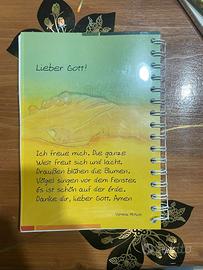 Lieber Gott!
Ich freue mich. Die ganze
Welt freut sich und lacht.
Draußen blühen die Blumen,
Vögel singen vor dem Fenster.
Es ist schön auf der Erde.
Danke dir, lieber Gott. Amen